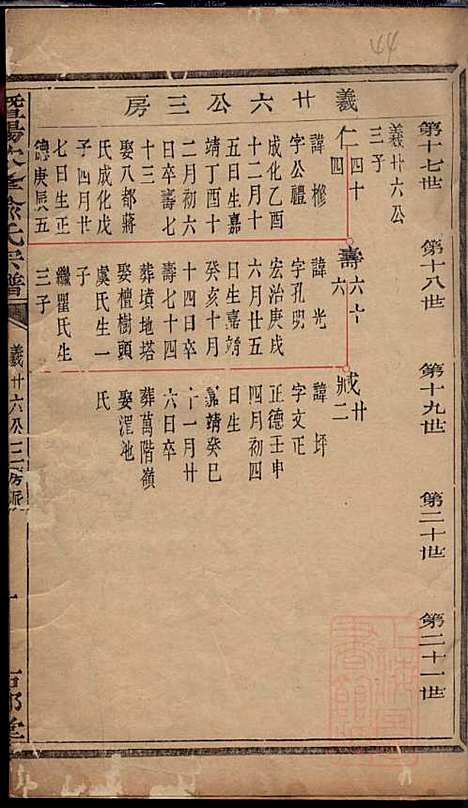 44
義廿六公三房
第十七世　第十八世　第十九世　第二十世　第二十一世
義廿六公
三子
仁四十四
諱椮
字公禮
成化乙酉
十二月十
五日生嘉
靖丁酉十
二月初六
日卒壽七
十三
娶八都蔣
氏成化戊
子四月廿
七日生正
德庚辰五
壽六十六
諱光
字孔明
宏治庚戌
六月廿五
日生嘉靖
癸亥十月
十四日卒
壽七十四
葬墳地塔
娶檀樹頭
虞氏生一
子
繼瞿氏生
三子
廿二
諱坪
字文正
正德壬申
四月初四
日生
嘉靖癸巳
十一月廿
六日卒
葬萬階嶺
娶湴池
氏
暨陽次峯俞氏宗譜　義廿六公三房派　一　堂